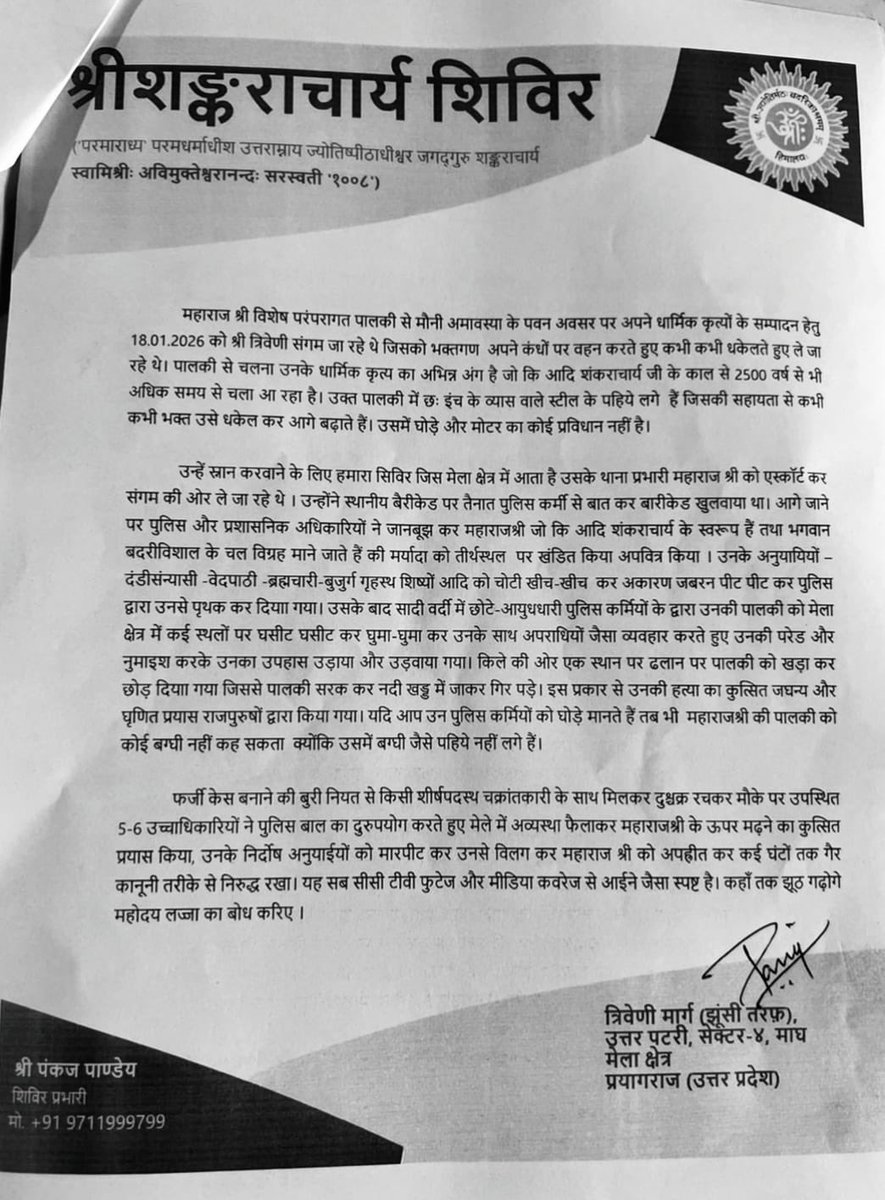 श्रीशङ्कराचार्य शिविर
('परमाराध्य' परमधर्माधीश उत्तराम्नाय ज्योतिष्पीठाधीश्वर जगद्‌गुरु शङ्कराचार्य
स्वामिश्रीः अविमुक्तेश्वरानन्दः सरस्वती '१००८')
श्री ज्योतिर्मठः बदरिकाश्रमः
हिमालयः
महाराज श्री विशेष परंपरागत पालकी से मौनी अमावस्या के पवन अवसर पर अपने धार्मिक कृत्यों के सम्पादन हेतु
18.01.2026 को श्री त्रिवेणी संगम जा रहे थे जिसको भक्तगण अपने कंधों पर वहन करते हुए कभी कभी धकेलते हुए ले जा
रहे थे। पालकी से चलना उनके धार्मिक कृत्य का अभिन्न अंग है जो कि आदि शंकराचार्य जी के काल से 2500 वर्ष से भी
अधिक समय से चला आ रहा है। उक्त पालकी में छः इंच के व्यास वाले स्टील के पहिये लगे हैं जिसकी सहायता से कभी
कभी भक्त उसे धकेल कर आगे बढ़ाते हैं। उसमें घोड़े और मोटर का कोई प्रविधान नहीं है।
उन्हें स्नान करवाने के लिए हमारा सिविर जिस मेला क्षेत्र में आता है उसके थाना प्रभारी महाराज श्री को एस्कॉर्ट कर
संगम की ओर ले जा रहे थे । उन्होंने स्थानीय बैरीकेड पर तैनात पुलिस कर्मी से बात कर बारीकेड खुलवाया था। आगे जाने
पर पुलिस और प्रशासनिक अधिकारियों ने जानबूझ कर महाराजश्री जो कि आदि शंकराचार्य के स्वरूप हैं तथा भगवान
बदरीविशाल के चल विग्रह माने जाते हैं की मर्यादा को तीर्थस्थल पर खंडित किया अपवित्र किया । उनके अनुयायियों –
दंडीसंन्यासी -वेदपाठी -ब्रह्मचारी-बुजुर्ग गृहस्थ शिष्यों आदि को चोटी खीच-खीच कर अकारण जबरन पीट पीट कर पुलिस
द्वारा उनसे पृथक कर दियाा गया। उसके बाद सादी वर्दी में छोटे-आयुधधारी पुलिस कर्मियों के द्वारा उनकी पालकी को मेला
क्षेत्र में कई स्थलों पर घसीट घसीट कर घुमा-घुमा कर उनके साथ अपराधियों जैसा व्यवहार करते हुए उनकी परेड और
नुमाइश करके उनका उपहास उड़ाया और उड़वाया गया। किले की ओर एक स्थान पर ढलान पर पालकी को खड़ा कर
छोड़ दियाा गया जिससे पालकी सरक कर नदी खड्ड में जाकर गिर पड़े। इस प्रकार से उनकी हत्या का कुत्सित जघन्य और
घृणित प्रयास राजपुरुषों द्वारा किया गया। यदि आप उन पुलिस कर्मियों को घोड़े मानते हैं तब भी महाराजश्री की पालकी को
कोई बग्घी नहीं कह सकता क्योंकि उसमें बग्घी जैसे पहिये नहीं लगे हैं।
फर्जी केस बनाने की बुरी नियत से किसी शीर्षपदस्थ चक्रांतकारी के साथ मिलकर दुश्चक्र रचकर मौके पर उपस्थित
5-6 उच्चाधिकारियों ने पुलिस बाल का दुरुपयोग करते हुए मेले में अव्यस्था फैलाकर महाराजश्री के ऊपर मढ़ने का कुत्सित
प्रयास किया, उनके निर्दोष अनुयाईयों को मारपीट कर उनसे विलग कर महाराज श्री को अपहृीत कर कई घंटों तक गैर
कानूनी तरीके से निरुद्ध रखा। यह सब सीसी टीवी फुटेज और मीडिया कवरेज से आईने जैसा स्पष्ट है। कहाँ तक झूठ गढ़ोगे
महोदय लज्जा का बोध करिए ।
त्रिवेणी मार्ग (झूंसी तरफ़),
उत्तर पटरी, सेक्टर-४, माघ
मेला क्षेत्र
प्रयागराज (उत्तर प्रदेश)
श्री पंकज पाण्डेय
शिविर प्रभारी
मो. +91 9711999799